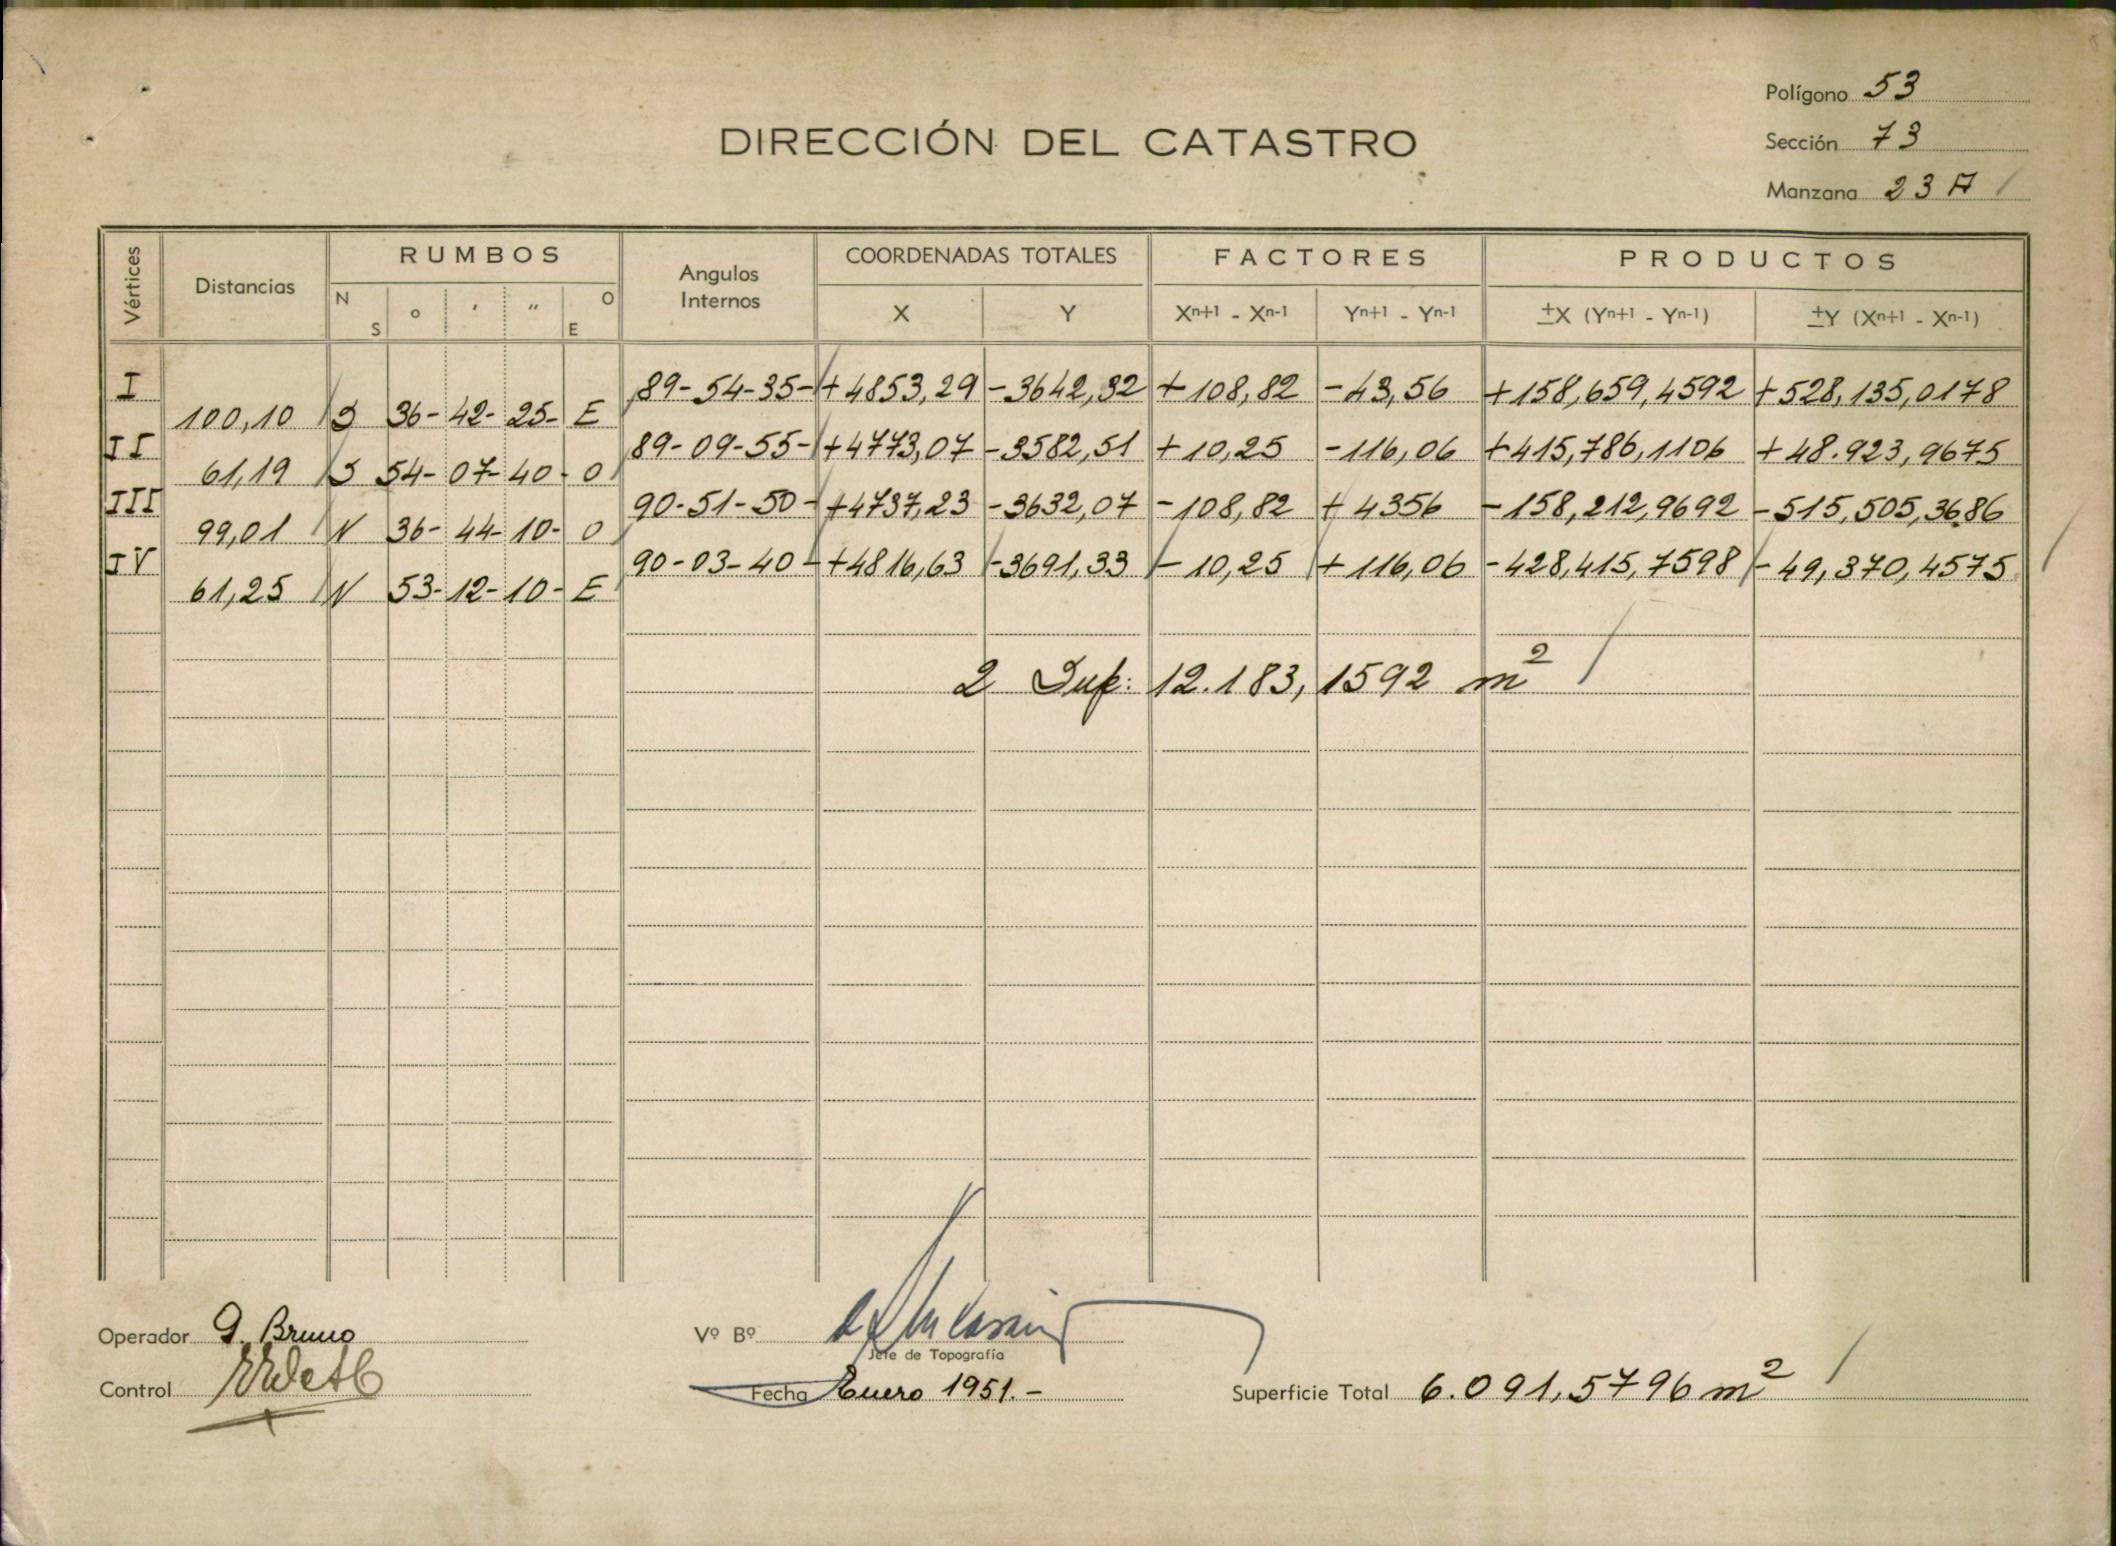 Polígono 53
DIRECCIÓN DEL CATASTRO
Sección 73
Manzana 23 A
Vértices Distancias RUMBOS Angulos Internos COORDENADAS TOTALES FACTORES PRODUCTOS
N S o ' " O E X Y Xn+1 - Xn-1 Yn+1 - Yn-1 ±X (Yn+1 - Yn-1) ±Y (Xn+1 - Xn-1)
I 89-54-35- +4853,29 -3642,32 +108,82 -43,56 +158,659,4592 +528,135,0178
100,10 S 36- 42- 25- E
II 89-09-55- +4773,07 -3582,51 +10,25 -116,06 +415,786,1106 +48.923,9675
61,19 S 54- 07- 40- O
III 90-51-50- +4737,23 -3632,07 -108,82 +4356 -158,212,9692 -515,505,3686
99,01 N 36- 44- 10- O
IV 90-03-40- +4816,63 -3691,33 -10,25 +116,06 -428,415,7598 -49,370,4575
61,25 N 53- 12- 10- E
2 Sup: 12.183,1592 m²
Operador G. Bruno Vº Bº
Jefe de Topografía
Control Fecha Enero 1951.- Superficie Total 6.091,5796 m²